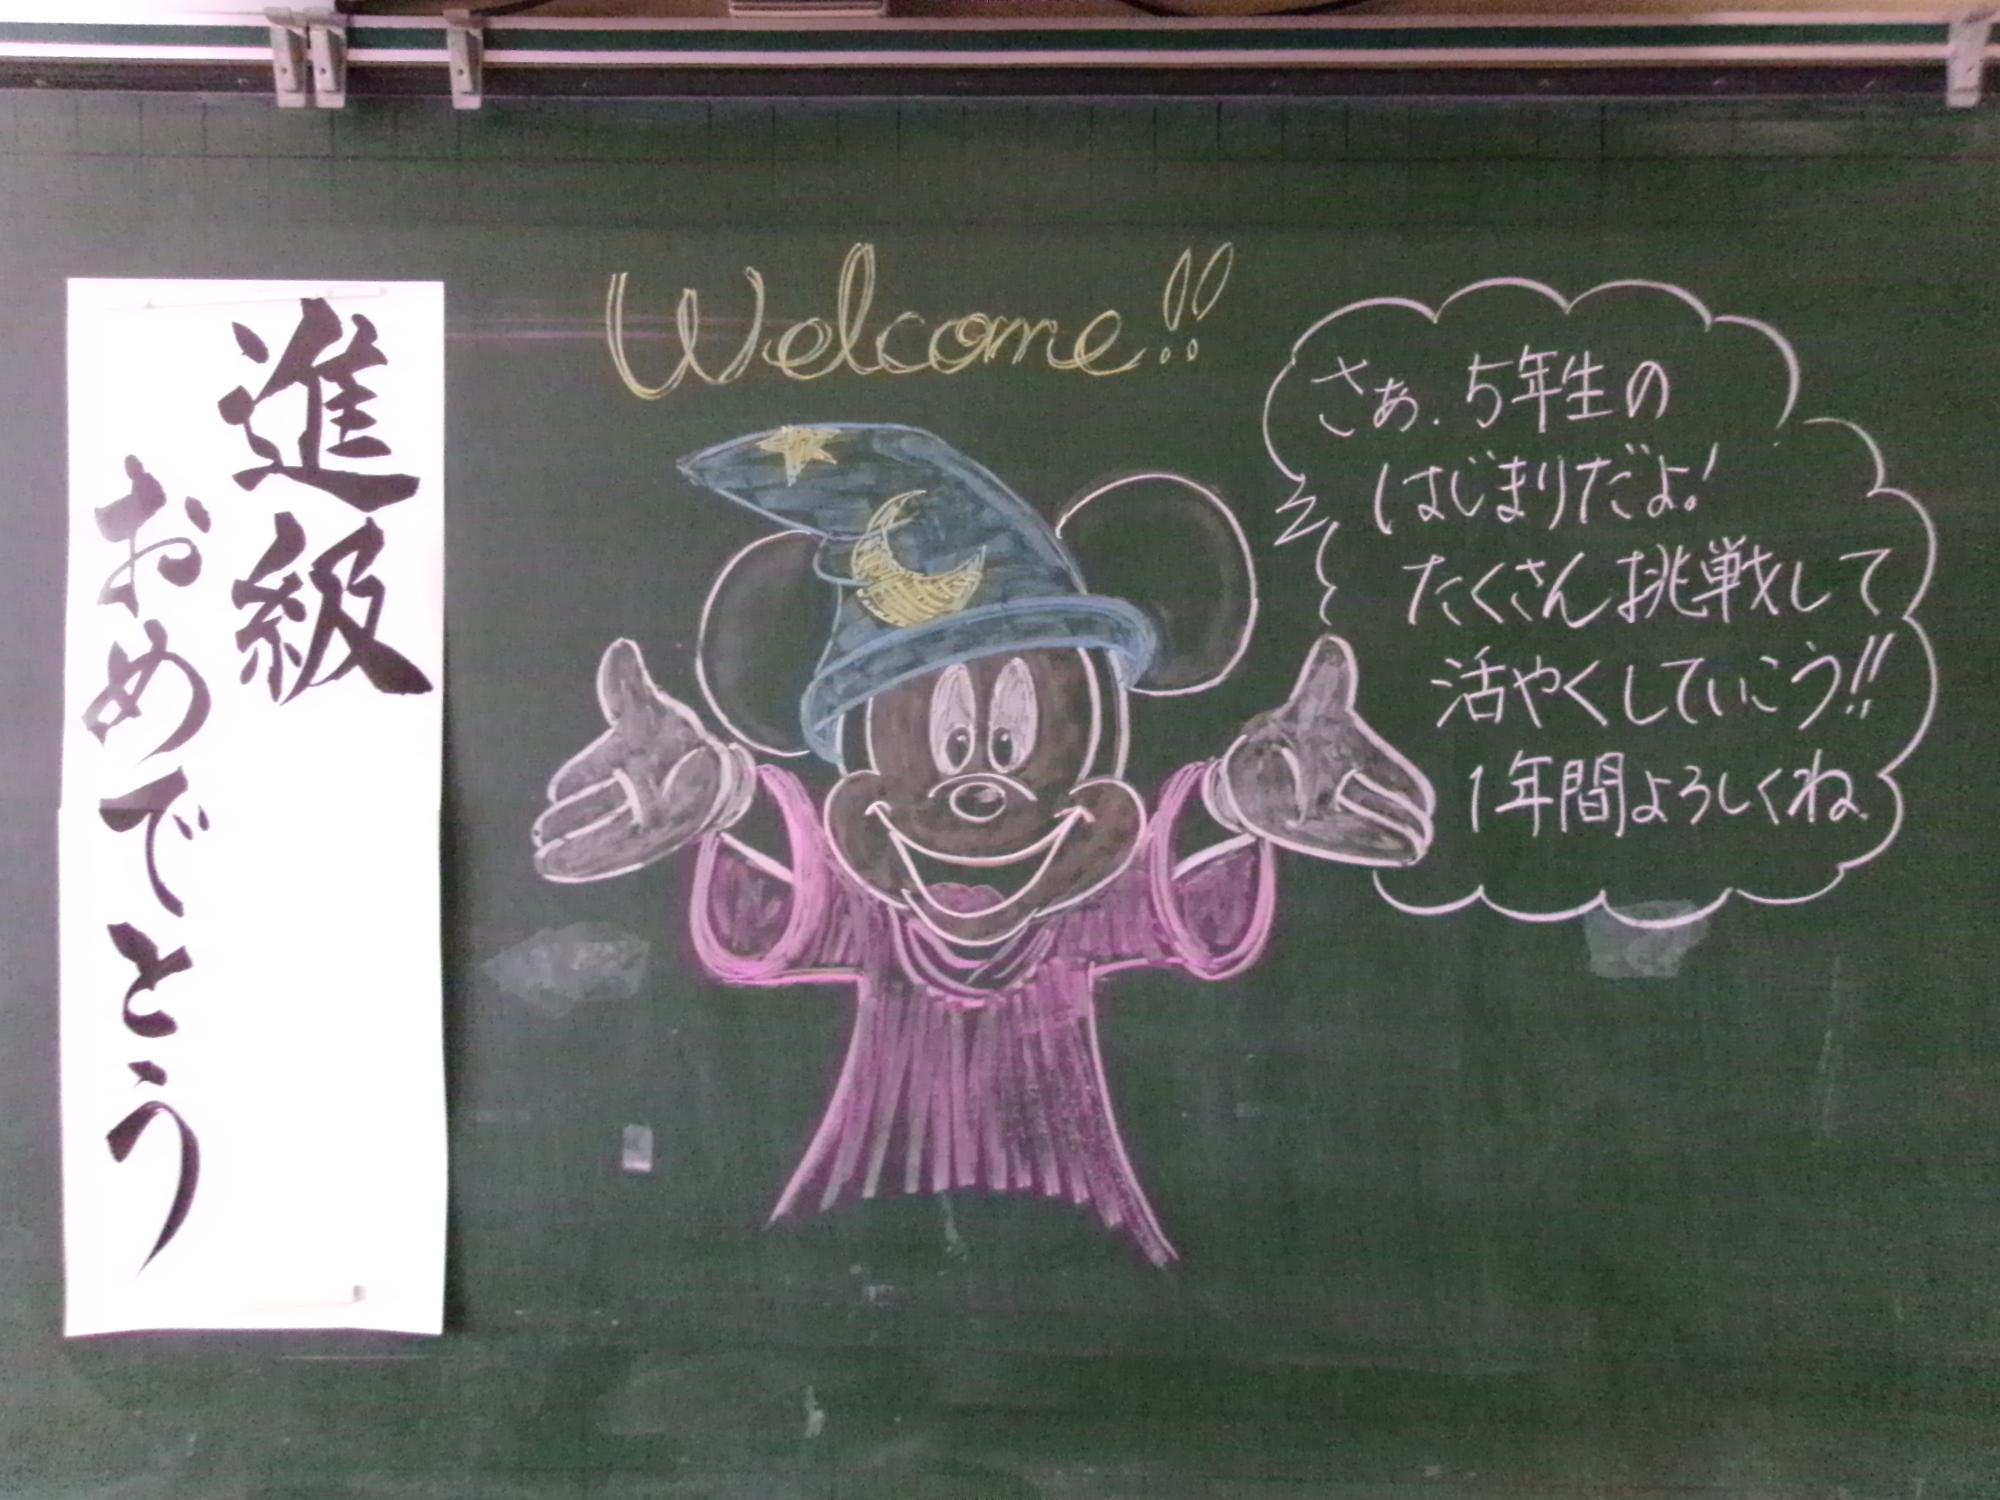 進級
おめでとう
Welcome!!
さぁ、5年生の
はじまりだよ!
たくさん挑戦して
活やくしていこう!!
1年間よろしくね。